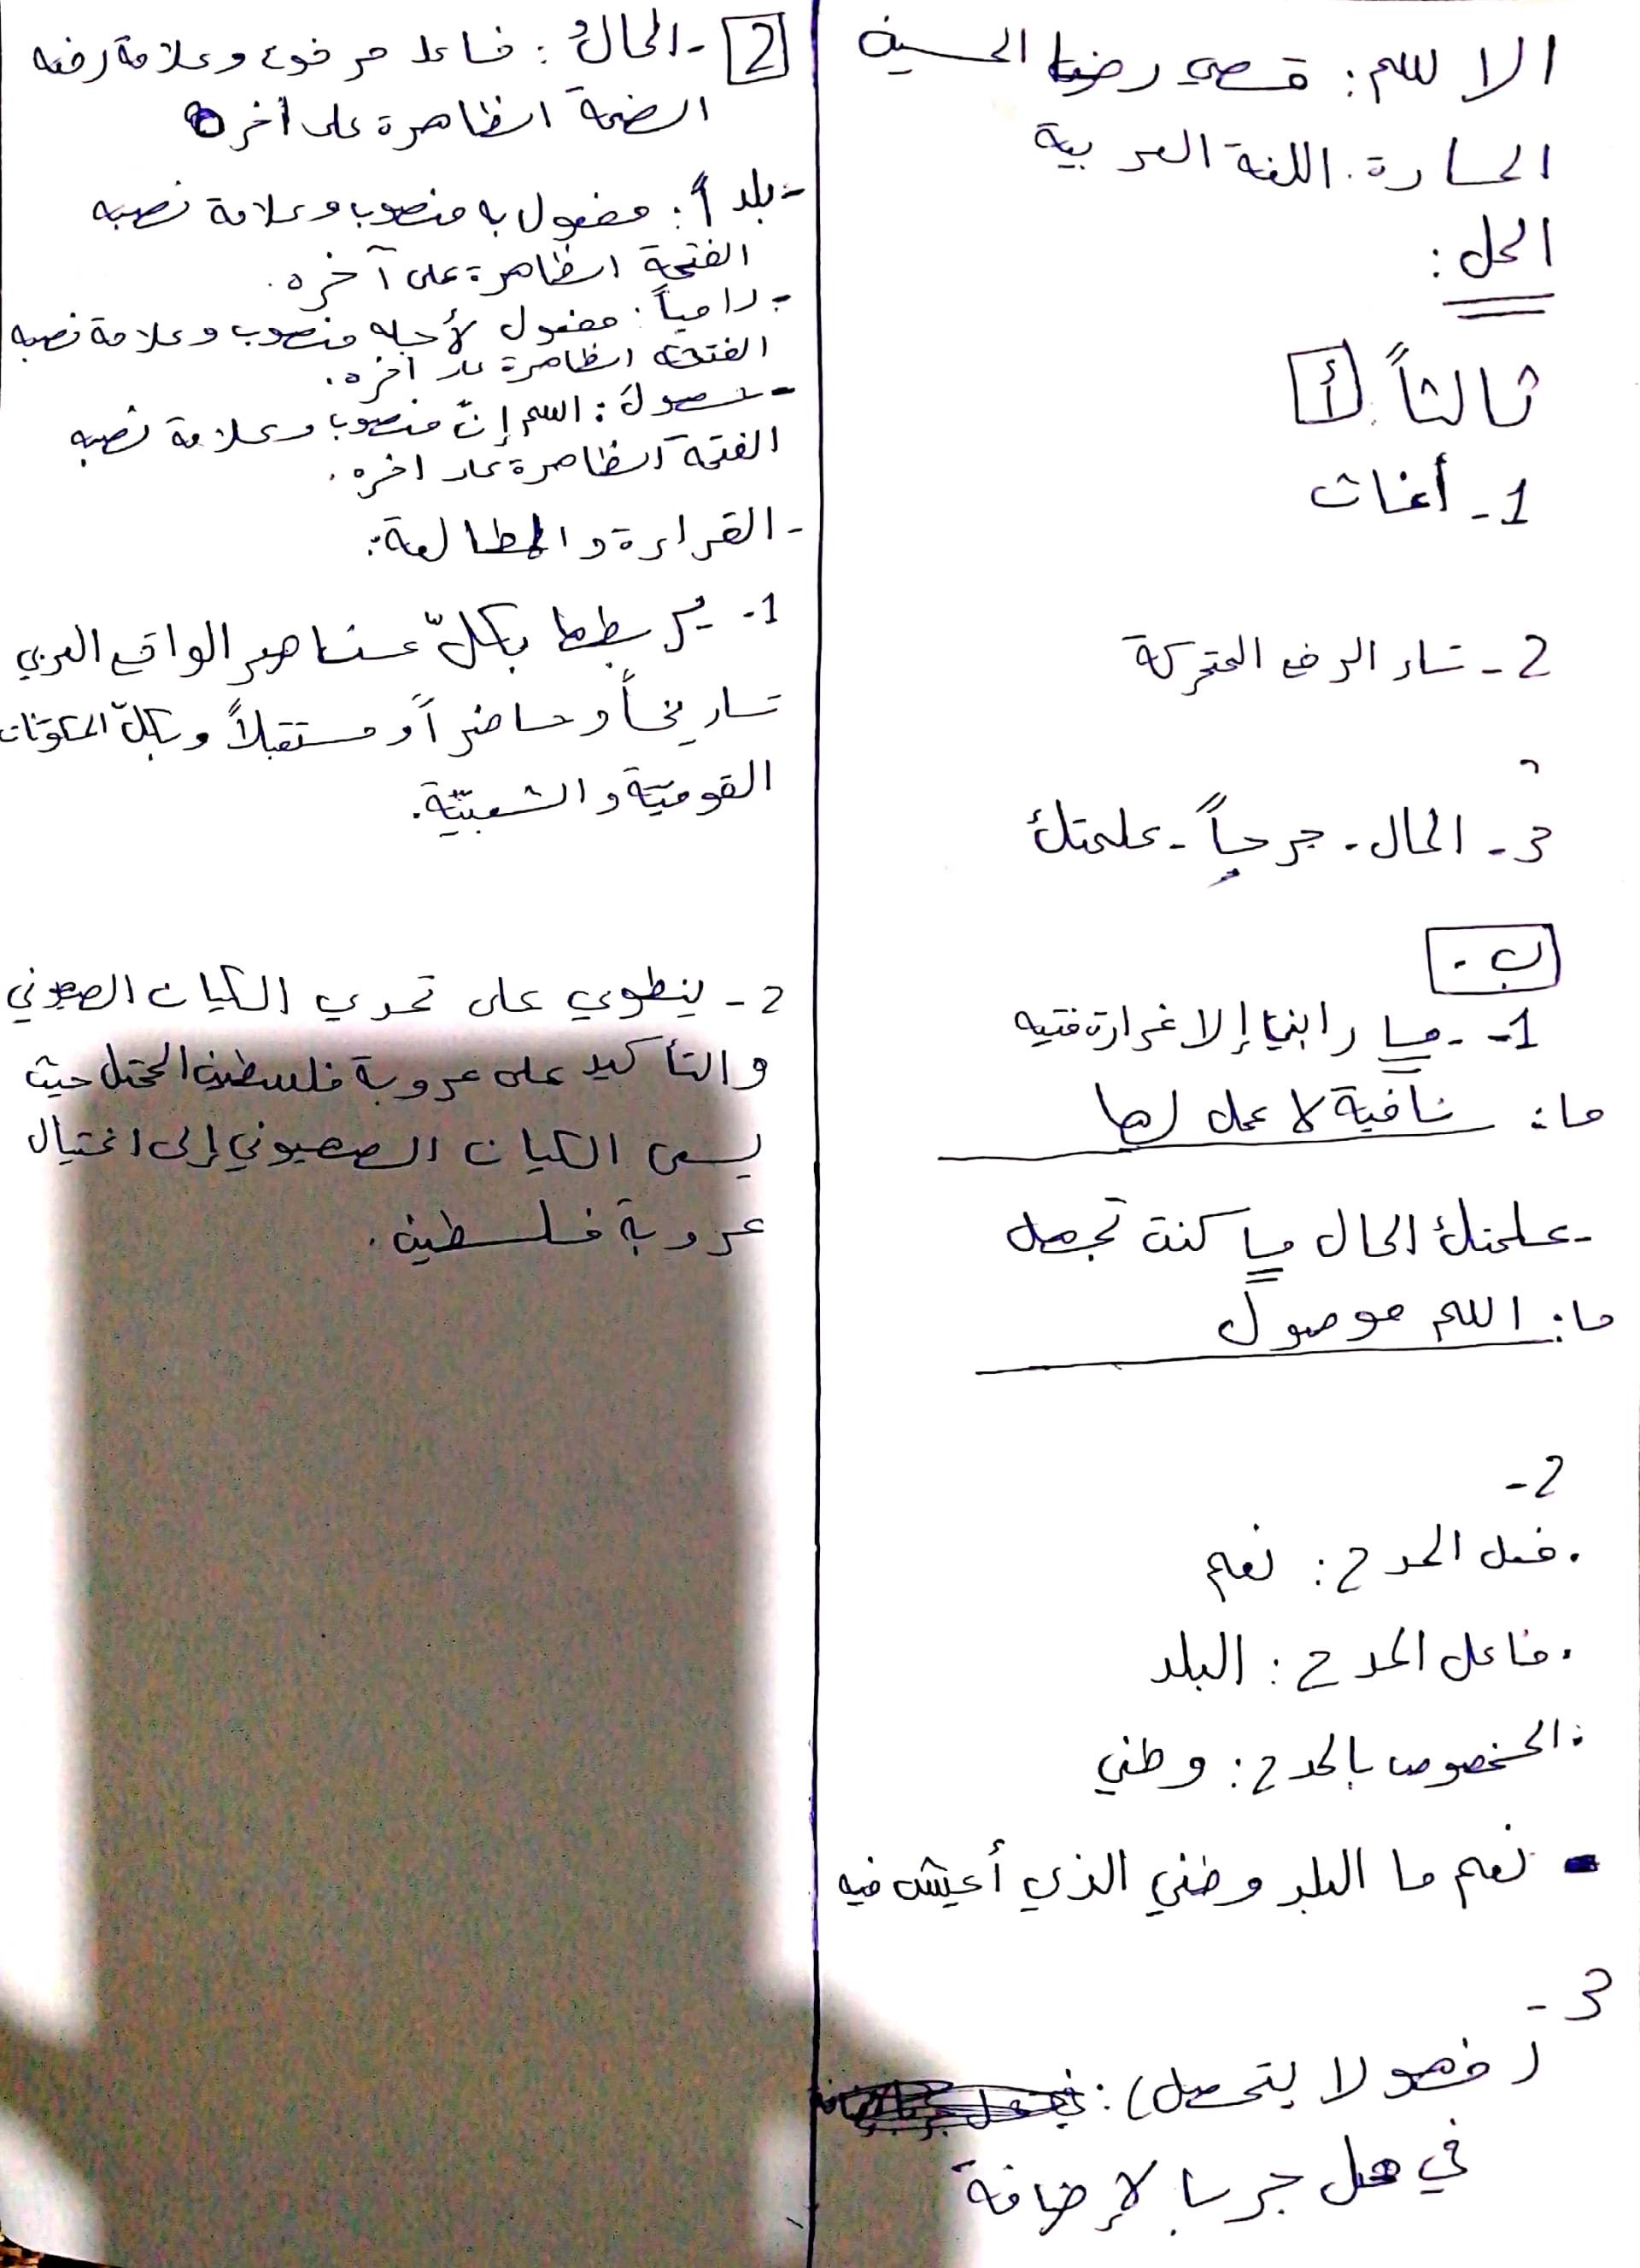 الاسم: قصي رضا الحسين
المادة: اللغة العربية
الحل:
ثالثاً أ
1- أغاث
2- تاء الرفع المتحركة
3- الحال - جرحاً - علمتك
ب .
1- - ما رابني إلا غرارة فتيه
ما: نافية لا عمل لها
- علمتك الحال ما كنت تجهل
ما: اسم موصول
2-
. فعل المدح: نعم
. فاعل المدح: البلد
. المخصوص بالمدح: وطني
- نعم ما البلد وطني الذي أعيش فيه
3-
(فهو لا يتحصل):
في محل جر بالإضافة
2 - الحالُ: فاعل مرفوع وعلامة رفعه
الضمة الظاهرة على آخره
- بلداً: مفعول به منصوب وعلامة نصبه
الفتحة الظاهرة على آخره.
- رامياً: مفعول لأجله منصوب وعلامة نصبه
الفتحة الظاهرة على اخره.
- اسم إنّ منصوب وعلامة نصبه
الفتحة الظاهرة على اخره.
- القراءة والمطالعة:
1- يربطها بكلّ عناصر الواقع العربي
تاريخاً وحاضراً ومستقبلاً وبكلّ المكوّنات
القوميّة والشعبيّة.
2- ينطوي على تحدي الكيان الصهيوني
والتأكيد على عروبة فلسطين المحتل حيث
يسعى الكيان الصهيوني إلى اغتيال
عروبة فلسطين.